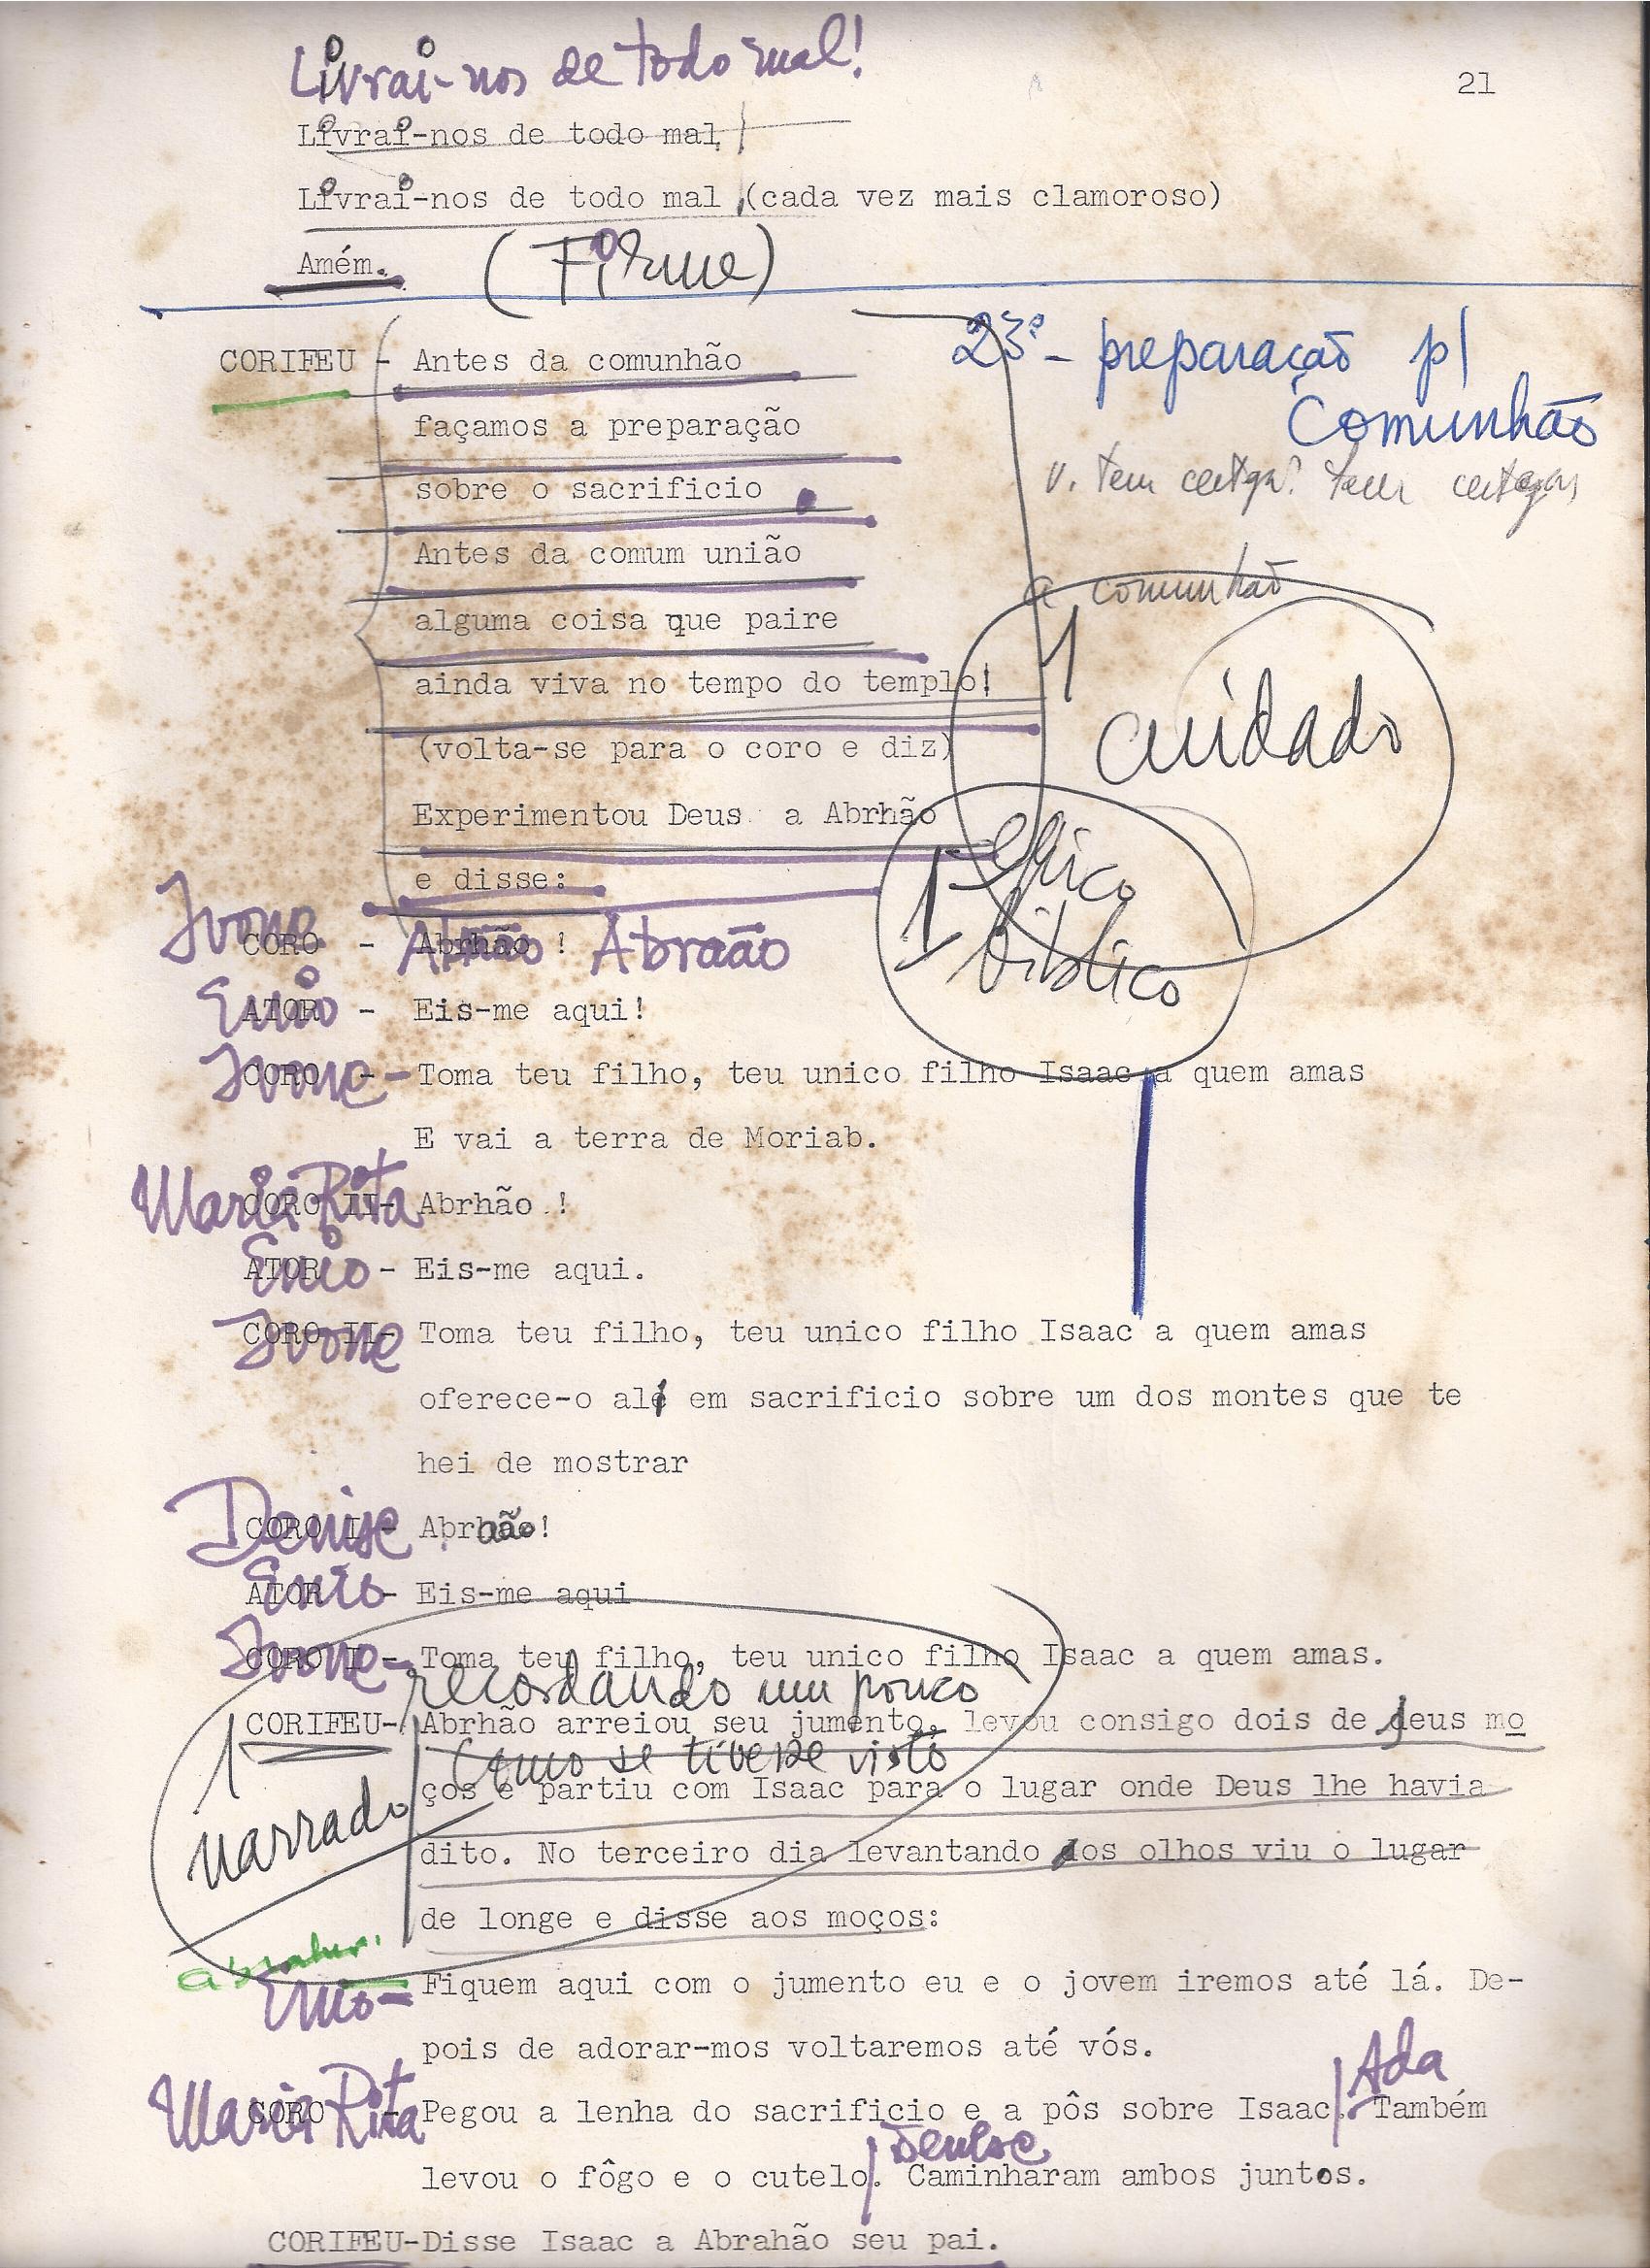 Livrai-nos de todo mal!
21
Livrai-nos de todo mal,
Livrai-nos de todo mal,(cada vez mais clamoroso)
Amém. (Firme)
CORIFEU - Antes da comunhão
23º- preparação p/
Comunhão
façamos a preparação
sobre o sacrificio
v. tem certeza?
Antes da comum união
a comunhão
alguma coisa que paire
ainda viva no tempo do templo!
1 cuidado
(volta-se para o coro e diz)
Experimentou Deus a Abrhão
1- épico
bíblico
e disse:
Ivone CORO - Abrhão ! Abraão
Enio ATOR - Eis-me aqui!
Ivone CORO - Toma teu filho, teu unico filho Isaac a quem amas
E vai a terra de Moriab.
Maria Rita CORO II- Abrhão !
Enio ATOR - Eis-me aqui.
Ivone CORO II- Toma teu filho, teu unico filho Isaac a quem amas
oferece-o alí em sacrificio sobre um dos montes que te
hei de mostrar
Denise CORO I- Abrhão!
Enio ATOR - Eis-me aqui
Ivone CORO I- Toma teu filho, teu unico filho Isaac a quem amas.
recordando um pouco
CORIFEU- Abrhão arreiou seu jumento, levou consigo dois de seus mo
como se tivesse visto
ços e partiu com Isaac para o lugar onde Deus lhe havia
1 narrado
dito. No terceiro dia levantando os olhos viu o lugar
de longe e disse aos moços:
Enio- Fiquem aqui com o jumento eu e o jovem iremos até lá. De-
pois de adorar-mos voltaremos até vós.
Ada
Maria Rita CORO - Pegou a lenha do sacrificio e a pôs sobre Isaac. Também
Denise
levou o fôgo e o cutelo. Caminharam ambos juntos.
CORIFEU-Disse Isaac a Abrahão seu pai.